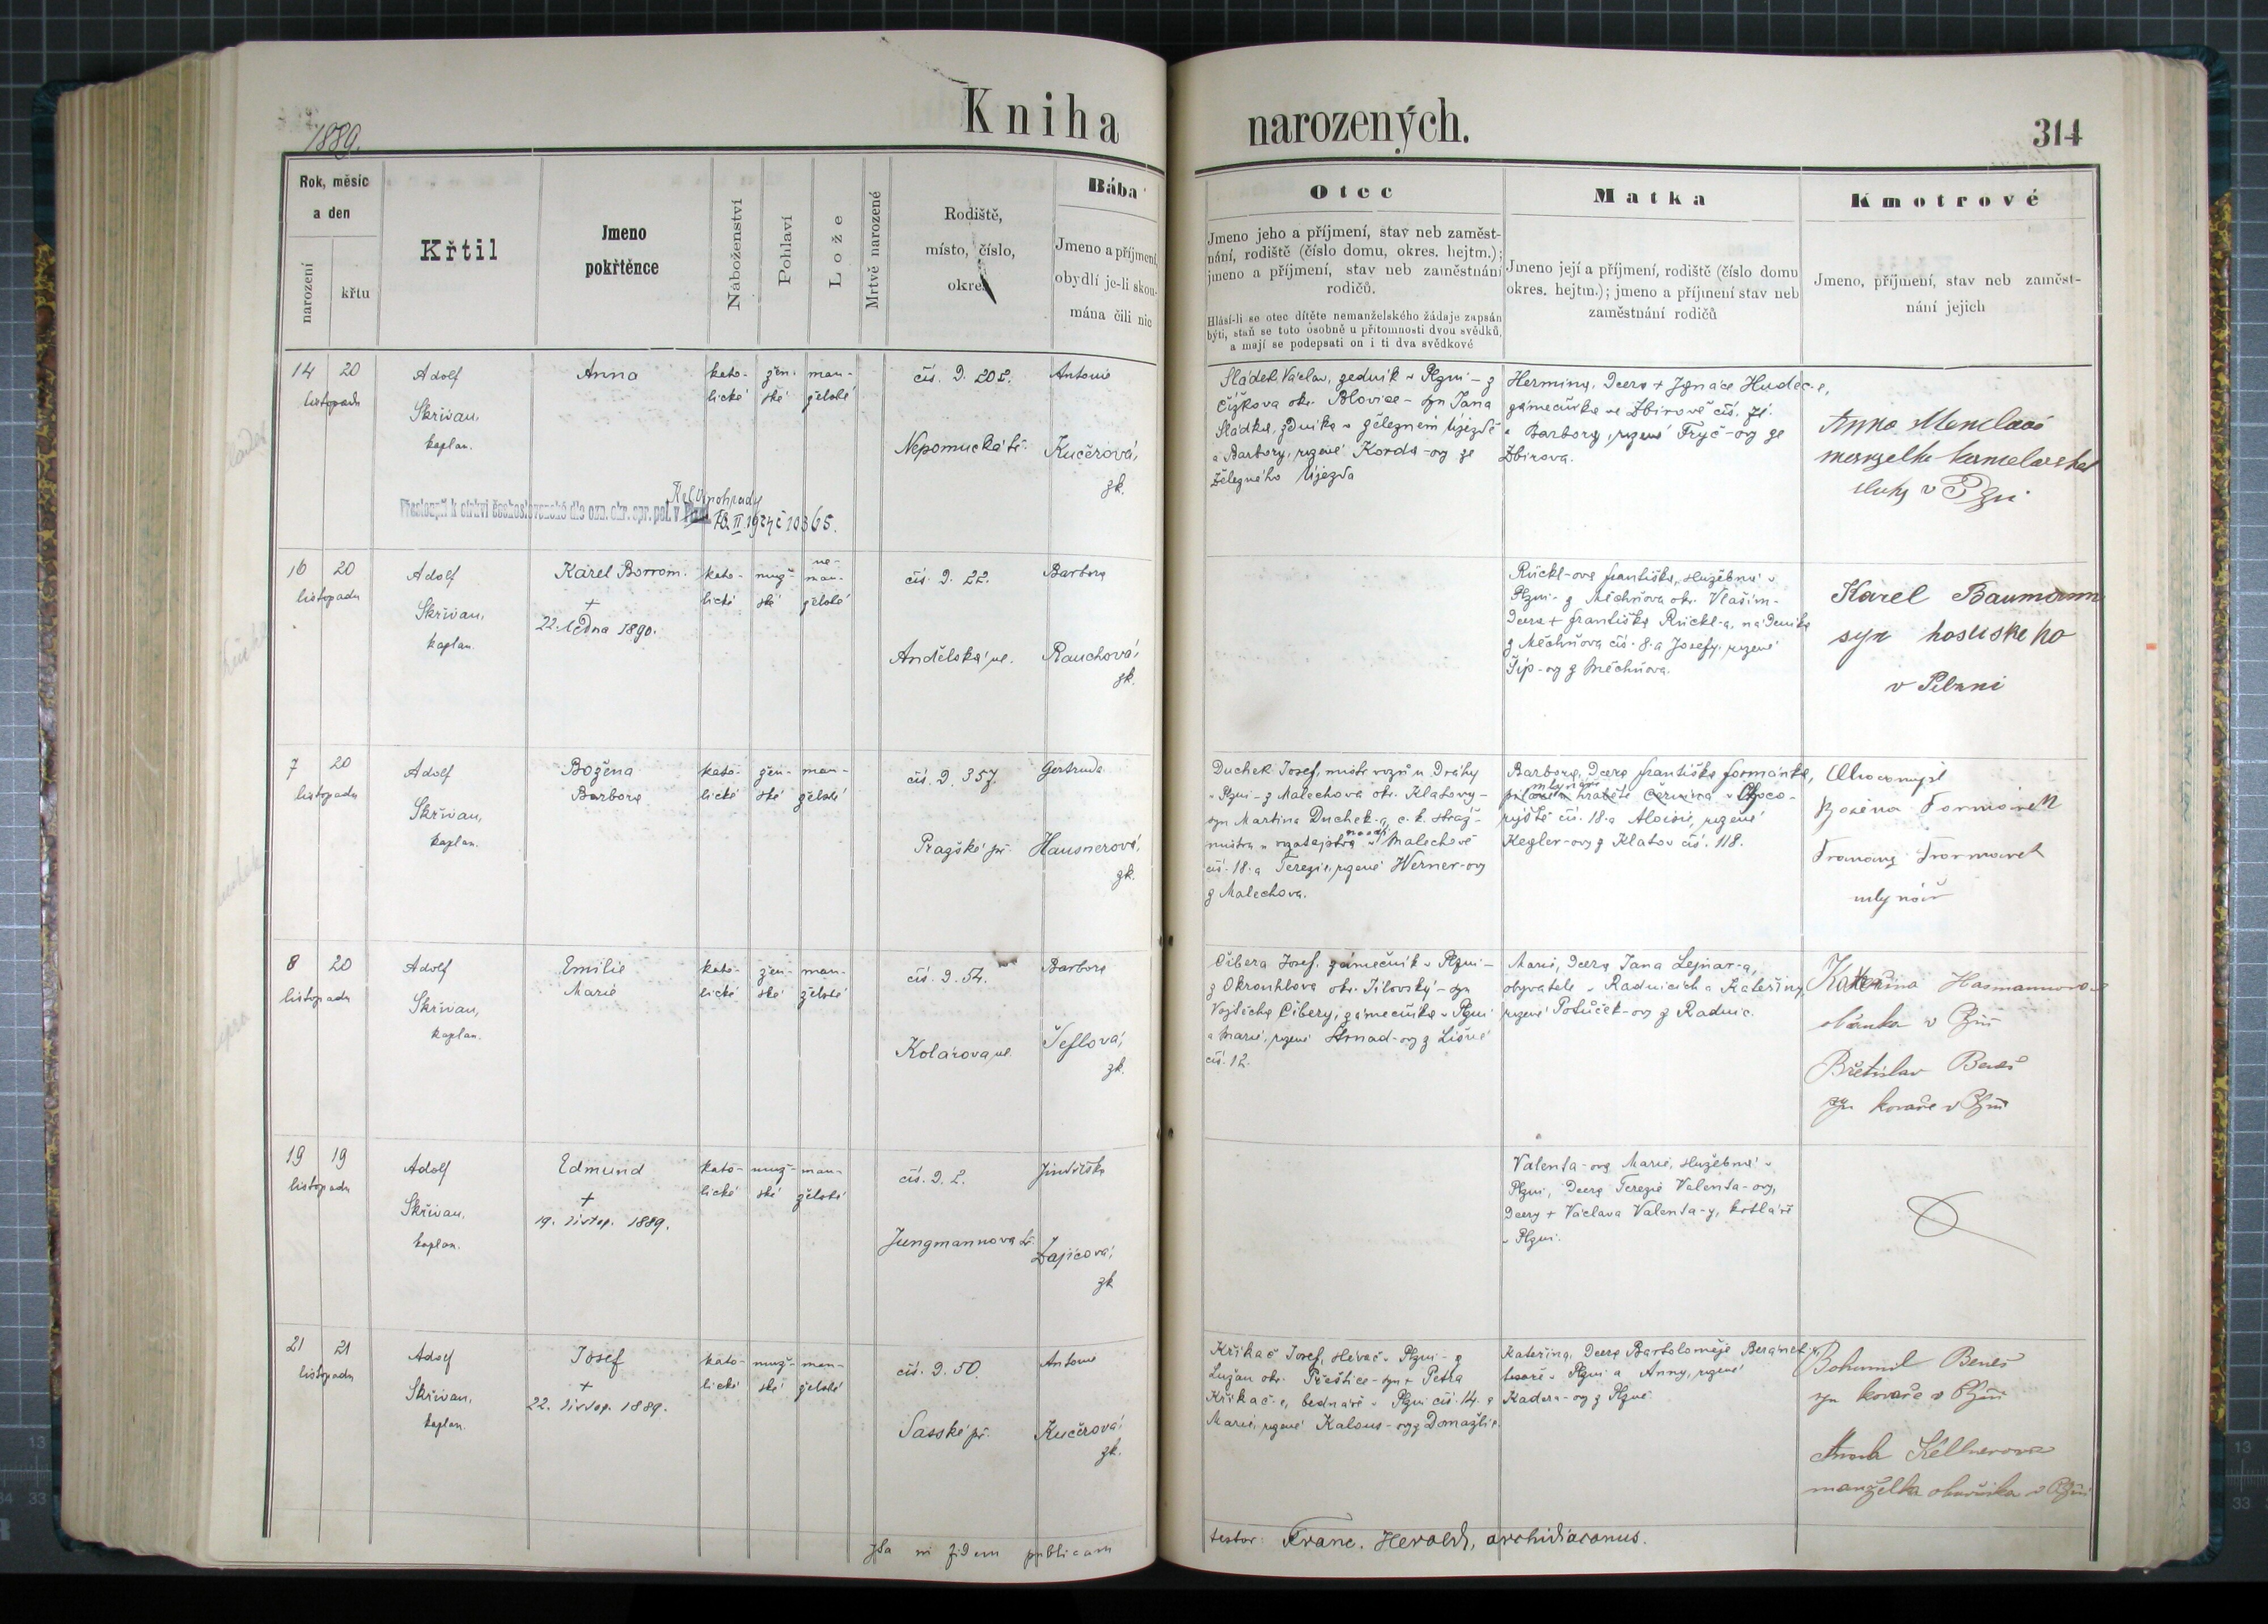 1889.
Kniha
narozených.
314
Rok, měsíc
a den
narození
křtu
Křtil
Jmeno
pokřtěnce
Náboženství
Pohlaví
Lože
Mrtvě narozené
Rodiště,
místo, číslo,
okres
Bába
Jmeno a příjmení,
obydlí je-li skou-
mána čili nic
Otec
Jmeno jeho a příjmení, stav neb zaměst-
nání, rodiště (číslo domu, okres. hejtm.);
jmeno a příjmení, stav neb zaměstnání
rodičů.
Hlásí-li se otec dítěte nemanželského žádaje zapsán
býti, staň se toto osobně u přítomnosti dvou svědků,
a mají se podepsati on i ti dva svědkové
Matka
Jmeno její a příjmení, rodiště (číslo domu
okres. hejtm.); jmeno a příjmení stav neb
zaměstnání rodičů
Kmotrové
Jmeno, příjmení, stav neb zaměst-
nání jejich
14 20
listopadu
Adolf
Skřivan,
kaplan.
Anna
kato-
lické
žen-
ské
man-
želské
čís. d. 202.
Nepomucká tř.
Antonie
Kučerová,
zk.
Přestoupil k církvi československé dle ozn. okr. spr. pol. v Plzni
Král. Vinohrady
18. II. 1924 č 10365.
Sládek Václav, zedník v Plzni - z
Čížkova okr. Blovice - syn Jana
Sládka, zedníka v Železném Újezdě
a Barbory, rozené Korda-ovy ze
Železného Újezda
Hermina, dcera + Ignáce Hudec-e,
zámečníka ve Zbirově čís. 71.
a Barbory, rozené Fryč-ovy ze
Zbirova.
Anna
v Plzni
16 20
listopadu
Adolf
Skřivan,
kaplan.
Karel Borrom.
+
22. ledna 1890.
kato-
lické
muž-
ské
ne-
man-
želské
čís. d. 22.
Andělská ul.
Barbora
Rauchová,
zk.
Rückl-ova Františka, služebná v
Plzni - z Měchňova okr. Vlašim -
dcera + Františka Rückl-a, nádeníka
z Měchňova čís. 8. a Josefy, rozené
Šíp-ovy z Měchňova.
Karel Baumann
syn hostinského
v Plzni
7 20
listopadu
Adolf
Skřivan,
kaplan.
Božena
Barbora
kato-
lické
žen-
ské
man-
želské
čís. d. 357.
Pražské př.
Gertruda
Hausnerová,
zk.
Duchek Josef, mistr vozů u dráhy
v Plzni - z Malechova okr. Klatovy -
syn Martina Duchek-a, c. k. stráž-
mistra u vozatajstva v Malechově
čís. 18. a Terezie, rozené Werner-ovy
z Malechova.
Barbora, dcera Františka Formánka,
mlynáře hraběte Černína v Choco-
myšli čís. 18. a Aloisie, rozené
Kegler-ovy z Klatov čís. 118.
Chocomyšl
Božena Formánek
Formanek
mlynář
8 20
listopadu
Adolf
Skřivan,
kaplan.
Emilie
Marie
kato-
lické
žen-
ské
man-
želské
čís. d. 54.
Kolárova ul.
Barbora
Šeflová,
zk.
Čibera Josef, zámečník v Plzni -
z Okrouhlova okr. Jílovský - syn
Vojtěcha Čibery, zámečníka v Plzni
a Marie, rozené Strnad-ovy z Lišné
čís. 12.
Marie, dcera Jana Lejnar-a,
obyvatele v Radnicích a Kateřiny,
rozené Potůček-ovy z Radnic.
Kateřina Hasmannova
v Plzni
Břetislav Beneš
syn kováře v Plzni
19 19
listopadu
Adolf
Skřivan,
kaplan.
Edmund
+
19. listop. 1889.
kato-
lické
muž-
ské
man-
želské
čís. d. 2.
Jungmannova tř.
Jindřiška
Zajícová,
zk
Valenta-ova Marie, služebná v
Plzni, dcera Terezie Valenta-ovy,
dcery + Václava Valenta-y, kotláře
v Plzni.
21 21
listopadu
Adolf
Skřivan,
kaplan.
Josef
+
22. listop. 1889.
kato-
lické
muž-
ské
man-
želské
čís. d. 50.
Saské př.
Antonie
Kučerová,
zk.
Křikač Josef, slévač v Plzni - z
Lužan okr. Přeštice - syn + Petra
Křikač-e, bednáře v Plzni čís. 14. a
Marie, rozené Kalous-ovy z Domažlic.
Kateřina, dcera Bartoloměje Beránek-a,
tesaře v Plzni a Anny, rozené
Kadera-ovy z Plzně.
Bohumil Beneš
syn kováře v Plzni
Kellnerova
manželka obuvníka v Plzni
Ita in fidem publicam
testor: Franc. Herold, archidiaconus.